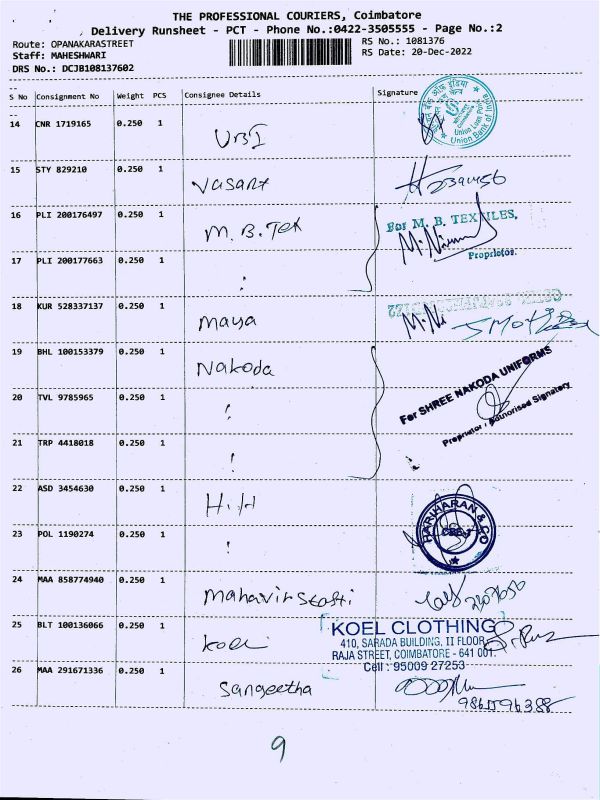 THE PROFESSIONAL COURIERS, Coimbatore
Delivery Runsheet - PCT - Phone No.:0422-3505555 - Page No.:2
Route: OPANAKARASTREET
RS No.: 1081376
Staff: MAHESHWARI
RS Date: 20-Dec-2022
DRS No.: DCJB108137602
S No Consignment No Weight PCS Consignee Details Signature
14 CNR 1719165 0.250 1 UBI
Union Bank of India
15 STY 829210 0.250 1 Vasant
16 PLI 200176497 0.250 1 M.B.Tex
For M. B. TEXTILES,
Proprietor.
17 PLI 200177663 0.250 1 "
18 KUR 528337137 0.250 1 Maya
19 BHL 100153379 0.250 1 Nakoda
For SHREE NAKODA UNIFORMS
Proprietor / Authorised Signatory
20 TVL 9785965 0.250 1 "
21 TRP 4418018 0.250 1 "
22 ASD 3454630 0.250 1 H.H
HARIHARAN & CO
CBE-1
23 POL 1190274 0.250 1 "
24 MAA 858774940 0.250 1
25 BLT 100136066 0.250 1 Koel
KOEL CLOTHING
410, SARADA BUILDING, II FLOOR,
RAJA STREET, COIMBATORE - 641 001.
Cell : 95009 27253
26 MAA 291671336 0.250 1 Sangeetha
9